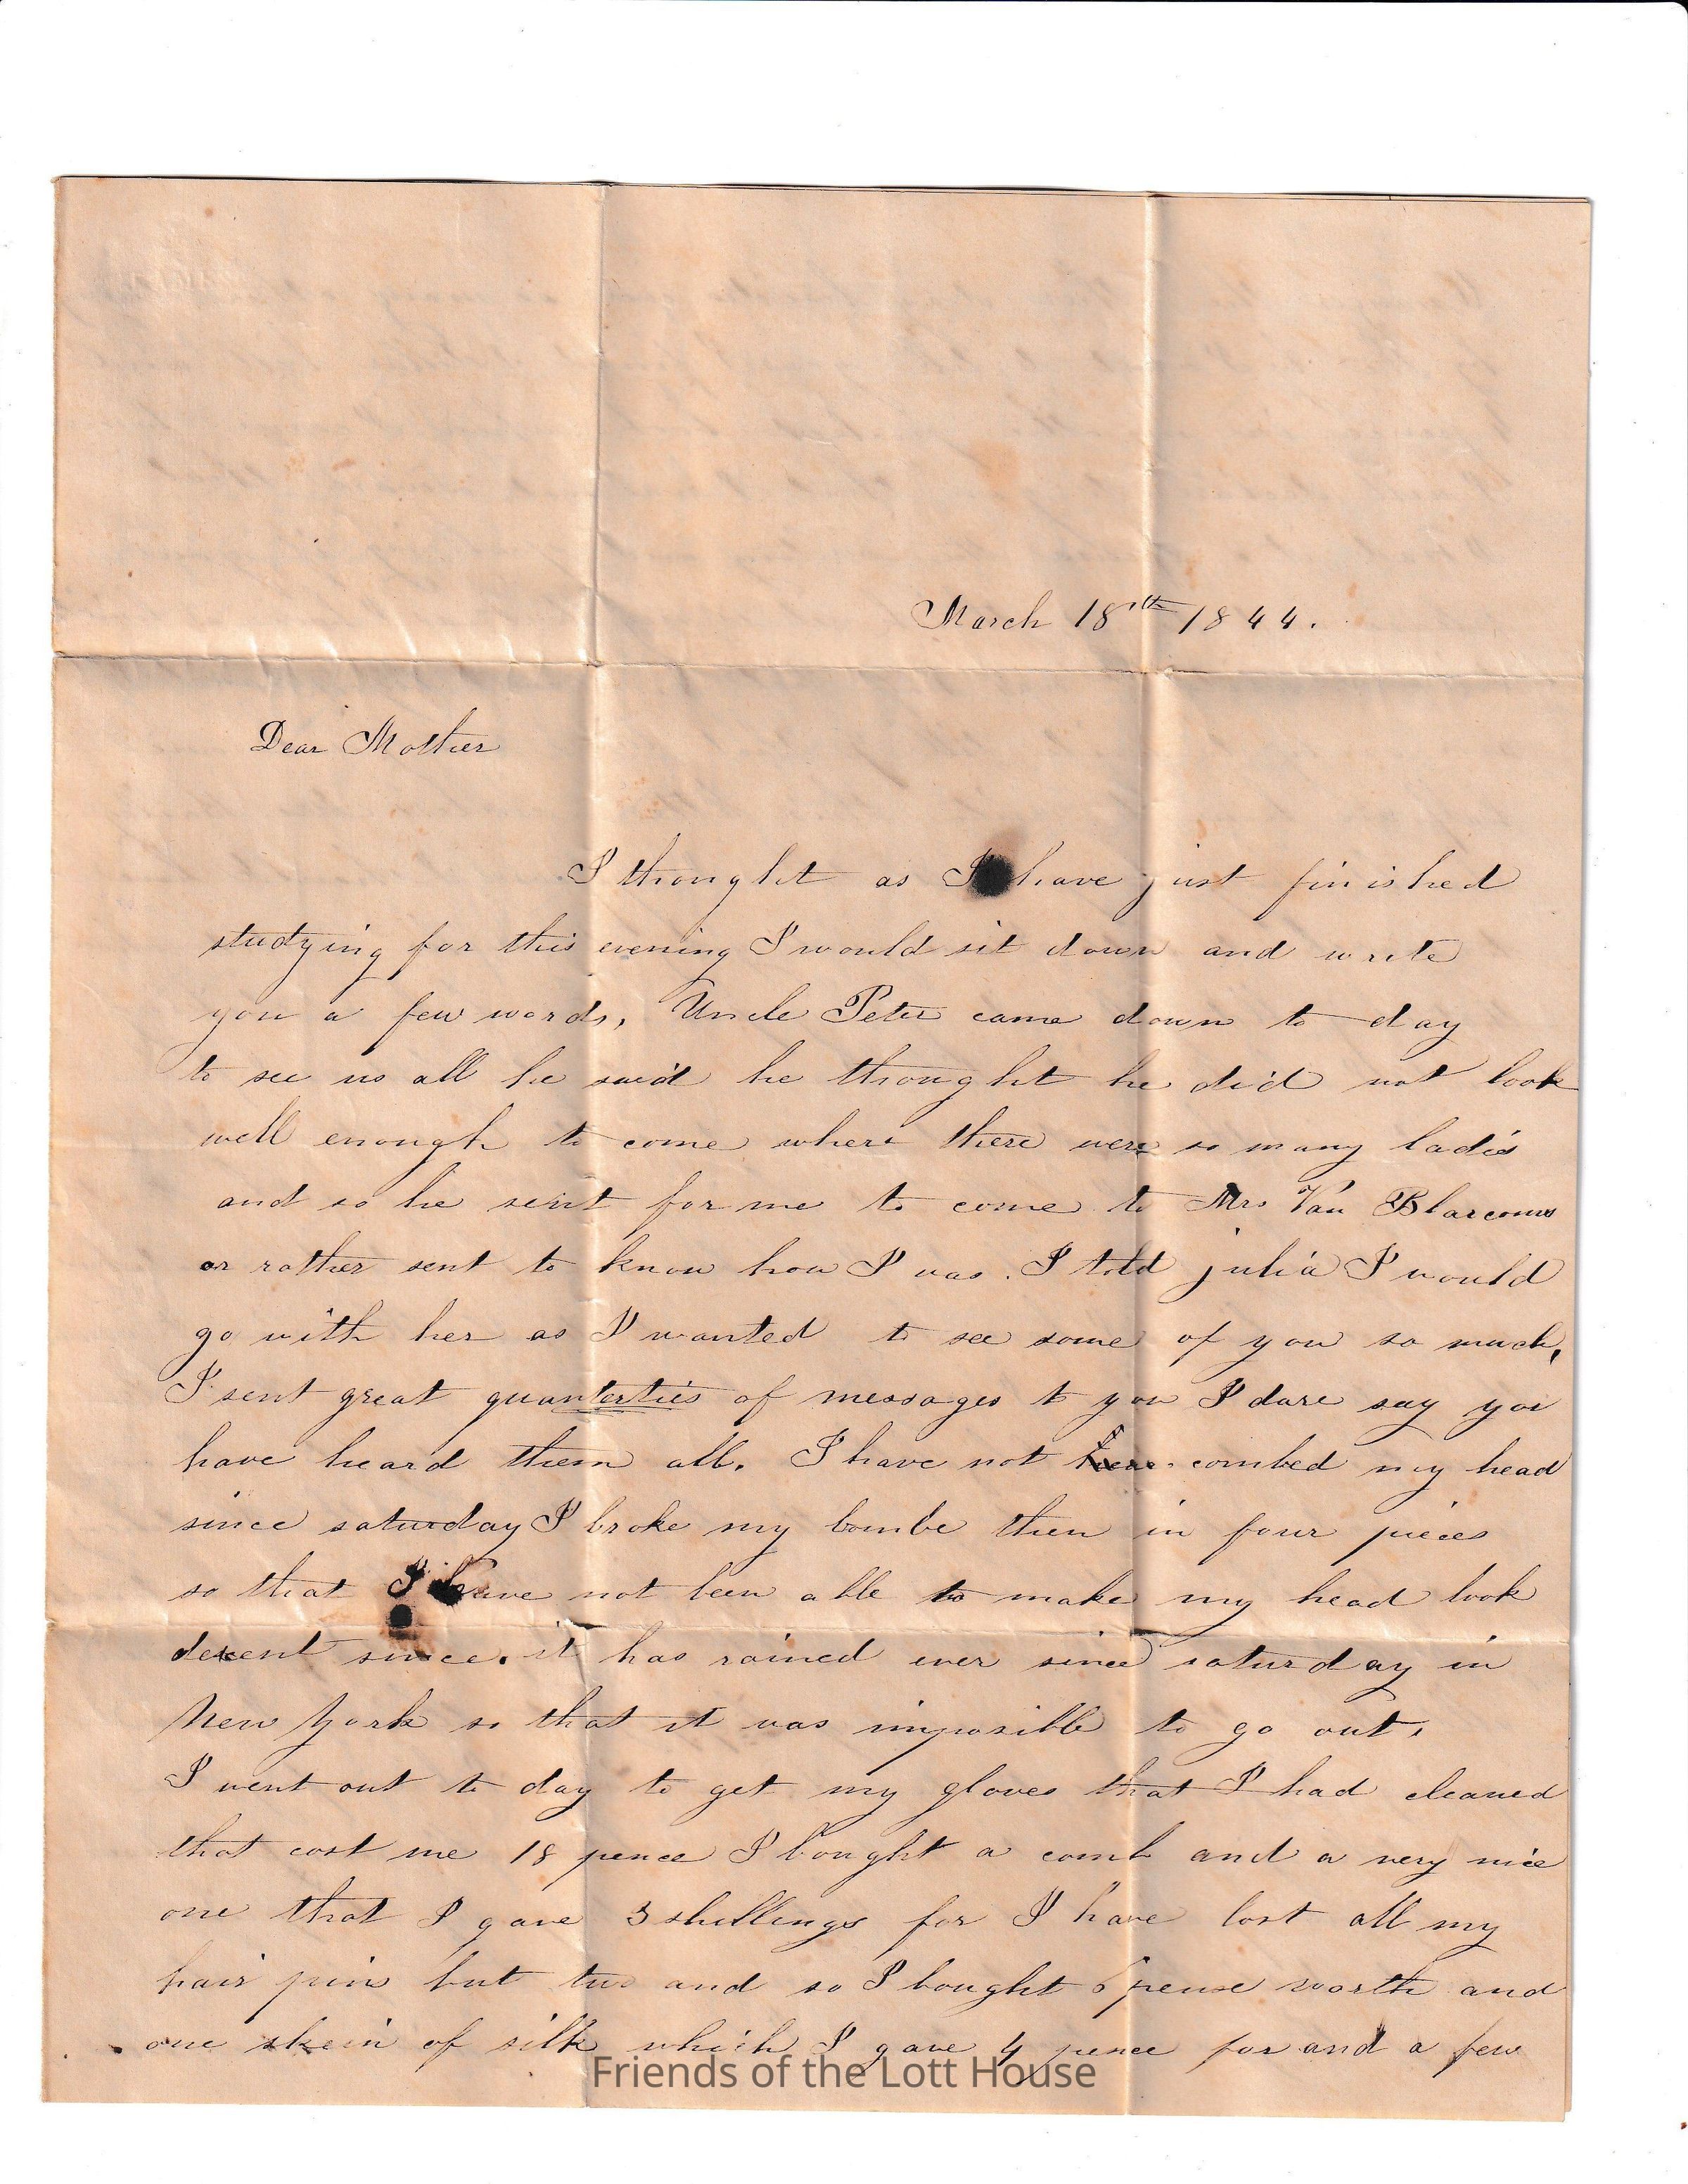 March 18th 1844.
Dear Mother
I thought as I have just finished
studying for this evening I would sit down and write
you a few words, Uncle Peter came down to day
to see us all he said he thought he did not look
well enough to come where there were so many ladies
and so he sent for me to come to Mrs Van Blarcoms
or rather sent to know how I was. I told julia I would
go with her as I wanted to see some of you so much,
I sent great quanterties of messages to you I dare say you
have heard them all. I have not combed my head
since saturday I broke my combe then in four pieces
so that I have not been able to make my head look
decent since. it has rained ever since saturday in
New York so that it was imposible to go out,
I went out to day to get my gloves that I had cleaned
that cost me 18 pence I bought a comb and a very nice
one that I gave 3 shillings for I have lost all my
hair pins but two and so I bought 6 pense worth and
one skein of silk which I gave 4 pence for and a few
Friends of the Lott House